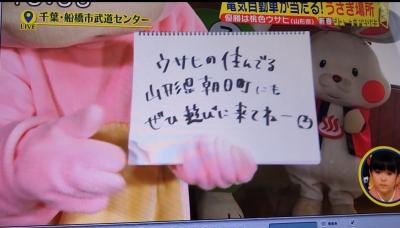 千葉・船橋市武道センター
LIVE
電気自動車が当たる!うさぎ場所
優勝は桃色ウサヒ(山形県)
ウサヒの住んでる
山形県朝日町にも
ぜひ遊びに来てねー